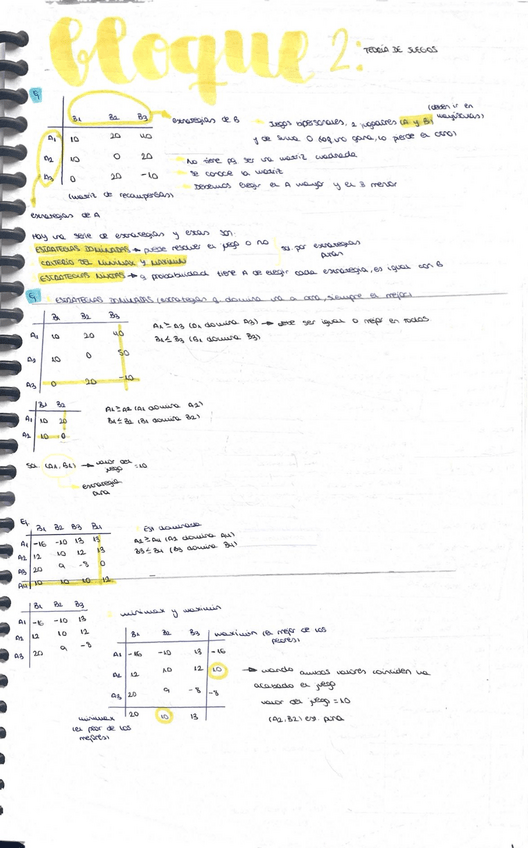 bloque 2: TEORÍA DE JUEGOS
B1 B2 B3 estrategias de B
Juegos bipersonales, 2 jugadores (A y B) (deben ir en mayúsculas)
A1 10 20 40 y de suma 0 (lo que uno gana, lo pierde el otro)
A2 10 0 20 No tiene pq ser una matriz cuadrada
A3 0 20 -10 Se conoce la matriz
(matriz de recompensas) Debemos elegir el A mayor y el B menor
estrategias de A
Hay una serie de estrategias y estas son:
ESTRATEGIAS DOMINADAS → puede resolver el juego o no
CRITERIO DEL MINIMAX Y MAXIMIN
sol. por estrategias puras
ESTRATEGIAS MIXTAS → q probabilidad tiene A de elegir cada estrategia, es igual con B
ESTRATEGIAS DOMINADAS (estrategia q domina una a otra, siempre el mejor)
B1 B2 B3
A1 10 20 40 A1 ≥ A3 (A1 domina A3) → debe ser igual o mejor en todos
B1 ≤ B3 (B1 domina B3)
A2 10 0 50
A3 0 20 -10
B1 B2
A1 10 20 A1 ≥ A2 (A1 domina A2)
A2 10 0 B1 ≤ B2 (B1 domina B2)
Sol. (A1, B1) → valor del juego = 10
estrategia pura
Ej
B1 B2 B3 B4 Est dominada
A1 -16 -10 13 13 A2 ≥ A4 (A2 domina A4)
A2 12 10 12 13 B3 ≤ B4 (B3 domina B4)
A3 20 9 -8 0
A4 10 10 10 12
B1 B2 B3
A1 -16 -10 13
A2 12 10 12
A3 20 9 -8
minimax y maximin
B1 B2 B3 maximin (el mejor de los peores)
A1 -16 -10 13 -16
A2 12 10 12 10 → cuando ambos valores coinciden ha acabado el juego
A3 20 9 -8 -8 valor del juego = 10
20 10 13 (A2, B2) est. pura
minimax (el peor de los mejores)